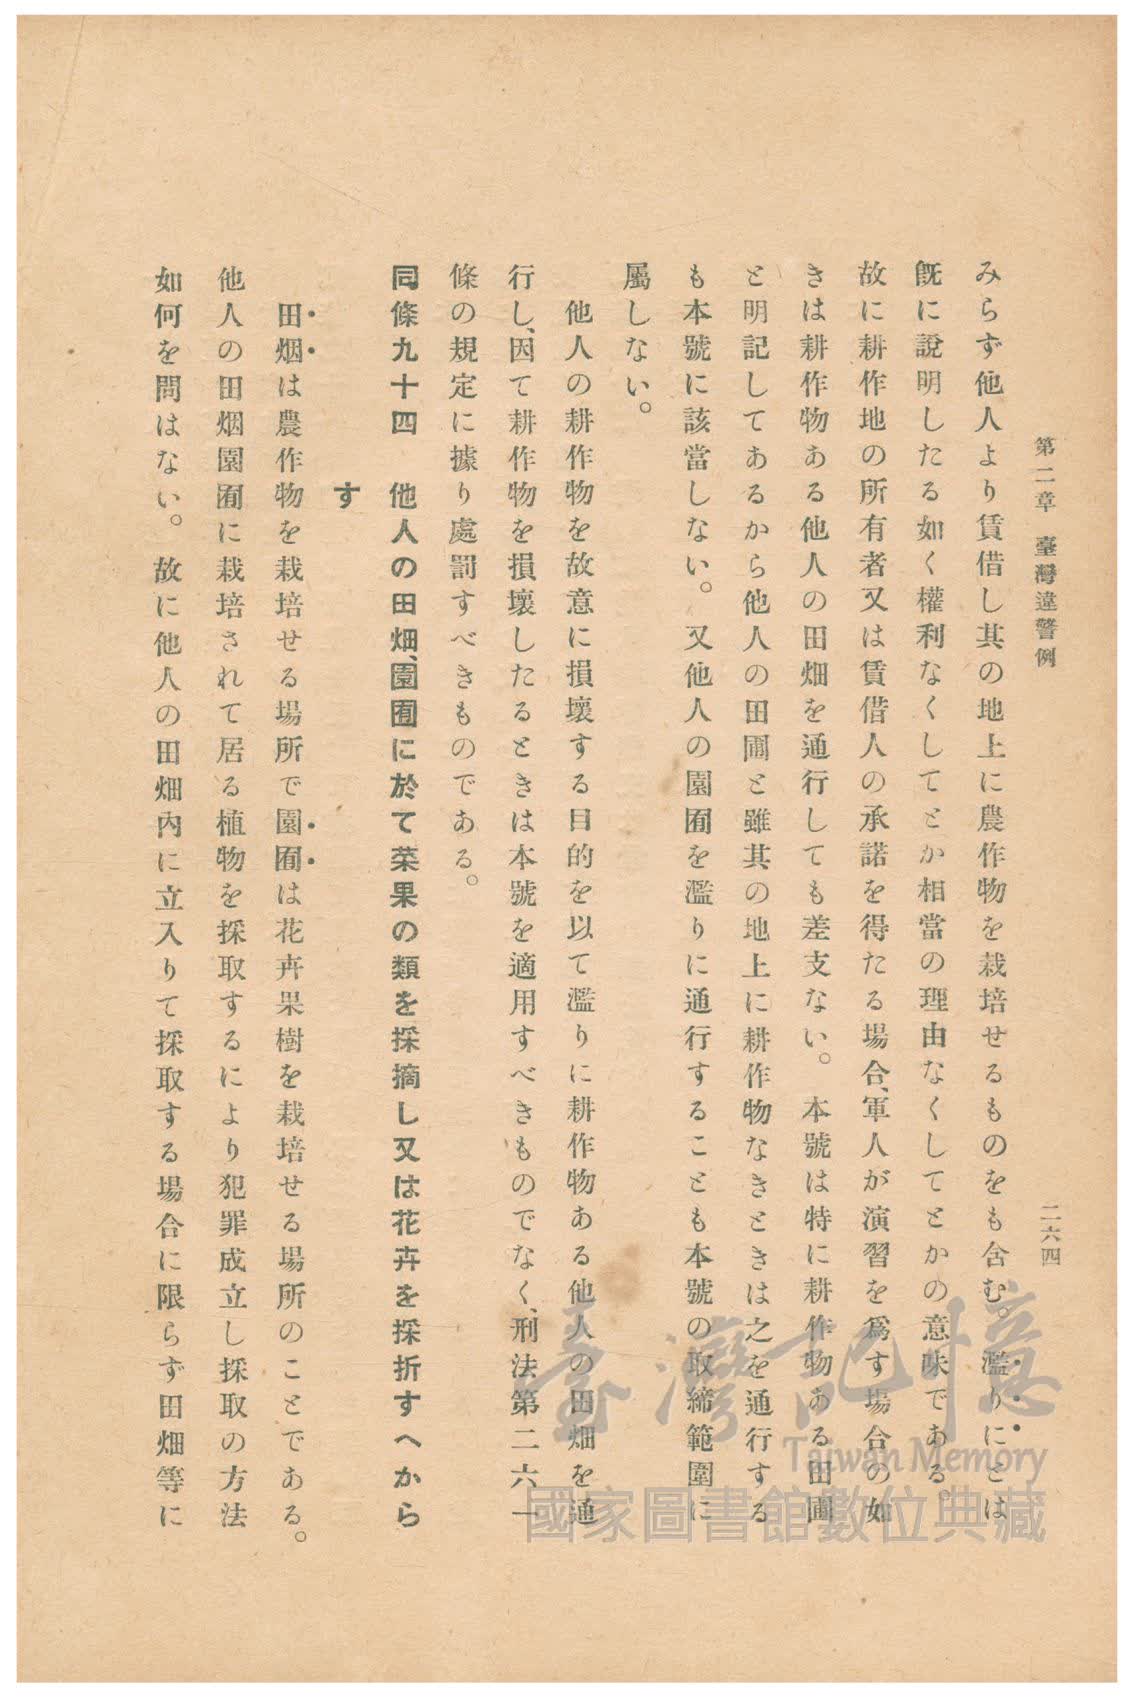 第二章 臺灣違警例 二六四
みらず他人より賃借し其の地上に農作物を栽培せるものをも含む。濫りにとは
既に說明したる如く權利なくしてとか相當の理由なくしてとかの意味である。
故に耕作地の所有者又は賃借人の承諾を得たる場合、軍人が演習を爲す場合の如
きは耕作物ある他人の田畑を通行しても差支ない。本號は特に耕作物ある田圃
と明記してあるから他人の田圃と雖其の地上に耕作物なきときは之を通行する
も本號に該當しない。又他人の園囿を濫りに通行することも本號の取締範圍に
屬しない。
他人の耕作物を故意に損壞する目的を以て濫りに耕作物ある他人の田畑を通
行し、因て耕作物を損壞したるときは本號を適用すべきものでなく、刑法第二六一
條の規定に據り處罰すべきものである。
同條九十四 他人の田畑、園囿に於て菜果の類を採摘し又は花卉を採折すへから
す
田烟は農作物を栽培せる場所で園囿は花卉果樹を栽培せる場所のことである。
他人の田烟園囿に栽培されて居る植物を採取するにより犯罪成立し採取の方法
如何を問はない。故に他人の田畑內に立入りて採取する場合に限らず田畑等に
臺灣記憶
Taiwan Memory
國家圖書館數位典藏